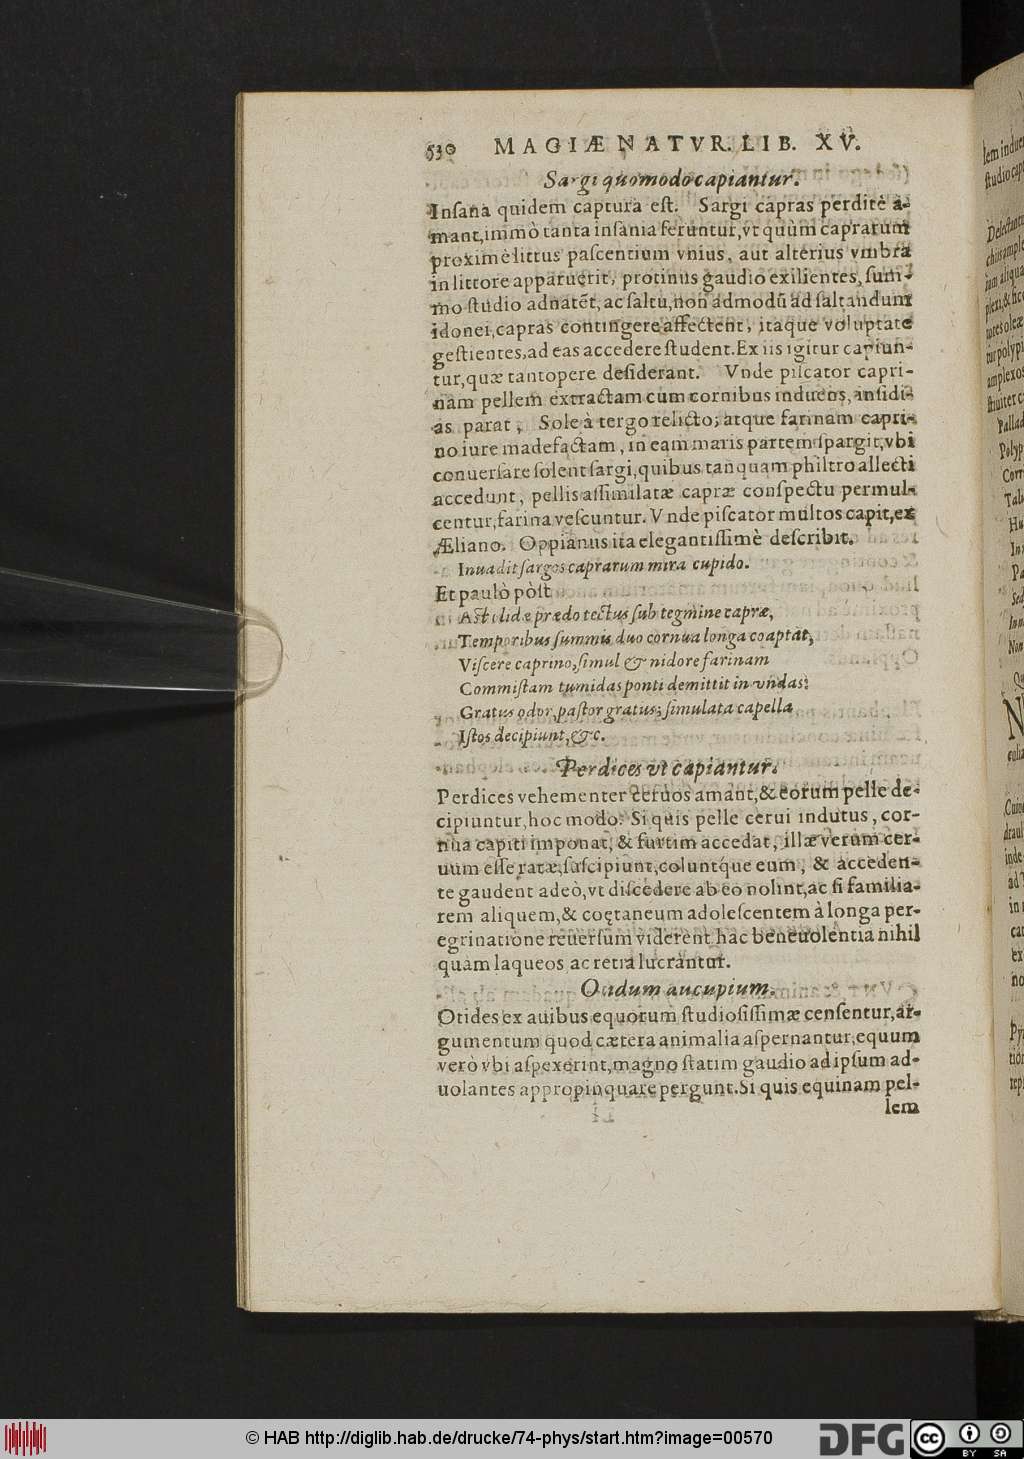 530 MAGIÆ NATVR. LIB. XV.
Sargi quomodo capiantur.
Insana quidem captura est. Sargi capras perditè a-
mant, immò tanta insania feruntur, vt quùm caprarum
proximè littus pascentium vnius, aut alterius vmbra
in littore apparuerit, protinus gaudio exilientes, sum-
mo studio adnatēt, ac saltu, non admodū ad saltandum
idonei, capras contingere affectent, itaque voluptate
gestientes, ad eas accedere student. Ex iis igitur capiun-
tur, quæ tantopere desiderant. Vnde piscator capri-
nam pellem extractam cum cornibus induens, insidi-
as parat, Sole à tergo relicto, atque farinam capri-
no iure madefactam, in eam maris partem spargit, vbi
conuersare solent sargi, quibus tanquam philtro allecti
accedunt, pellis assimilatæ capræ conspectu permul-
centur, farina vescuntur. Vnde piscator multos capit, ex
Æliano. Oppianus ita elegantissimè describit.
Inuadit sargos caprarum mira cupido.
Et paulò pòst
Ast illidæ prædo tectus sub tegmine capræ,
Temporibus summis duo cornua longa coaptat,
Viscere caprino, simul & nidore farinam
Commistam tumidas ponti demittit in vndas:
Gratus odor, pastor gratus, simulata capella
Istos decipiunt, &c.
Perdices vt capiantur.
Perdices vehementer ceruos amant, & eorum pelle de-
cipiuntur, hoc modo. Si quis pelle cerui indutus, cor-
nua capiti imponat, & furtim accedat, illæ verum cer-
uum esse ratæ, suscipiunt, coluntq́ue eum, & acceden-
te gaudent adeò, vt discedere ab eo nolint, ac si familia-
rem aliquem, & coętaneum adolescentem à longa per-
egrinatione reuersum viderent, hac beneuolentia nihil
quàm laqueos ac retia lucrantur.
Otidum aucupium.
Otides ex auibus equorum studiosissimæ censentur, ar-
gumentum quod cætera animalia aspernantur, equum
verò vbi aspexerint, magno statim gaudio ad ipsum ad-
uolantes appropinquare pergunt. Si quis equinam pel-
lem
© HAB http://diglib.hab.de/drucke/74-phys/start.htm?image=00570
DFG
cc BY SA